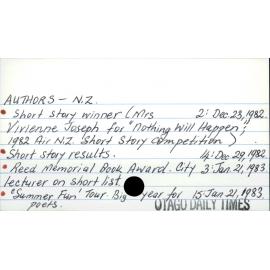 AUTHORS - N.Z.
• Short story winner (Mrs 2: Dec 23, 1982.
Vivienne Joseph for "Nothing Will Happen";
1982 Air N.Z. Short Story Competition)
• Short story results. 4: Dec 29, 1982.
• Reed Memorial Book Award. City 3: Jan 21, 1983
lecturer on short list
• "Summer Fun" Tour Big year for 15: Jan 21, 1983.
poets. OTAGO DAILY TIMES